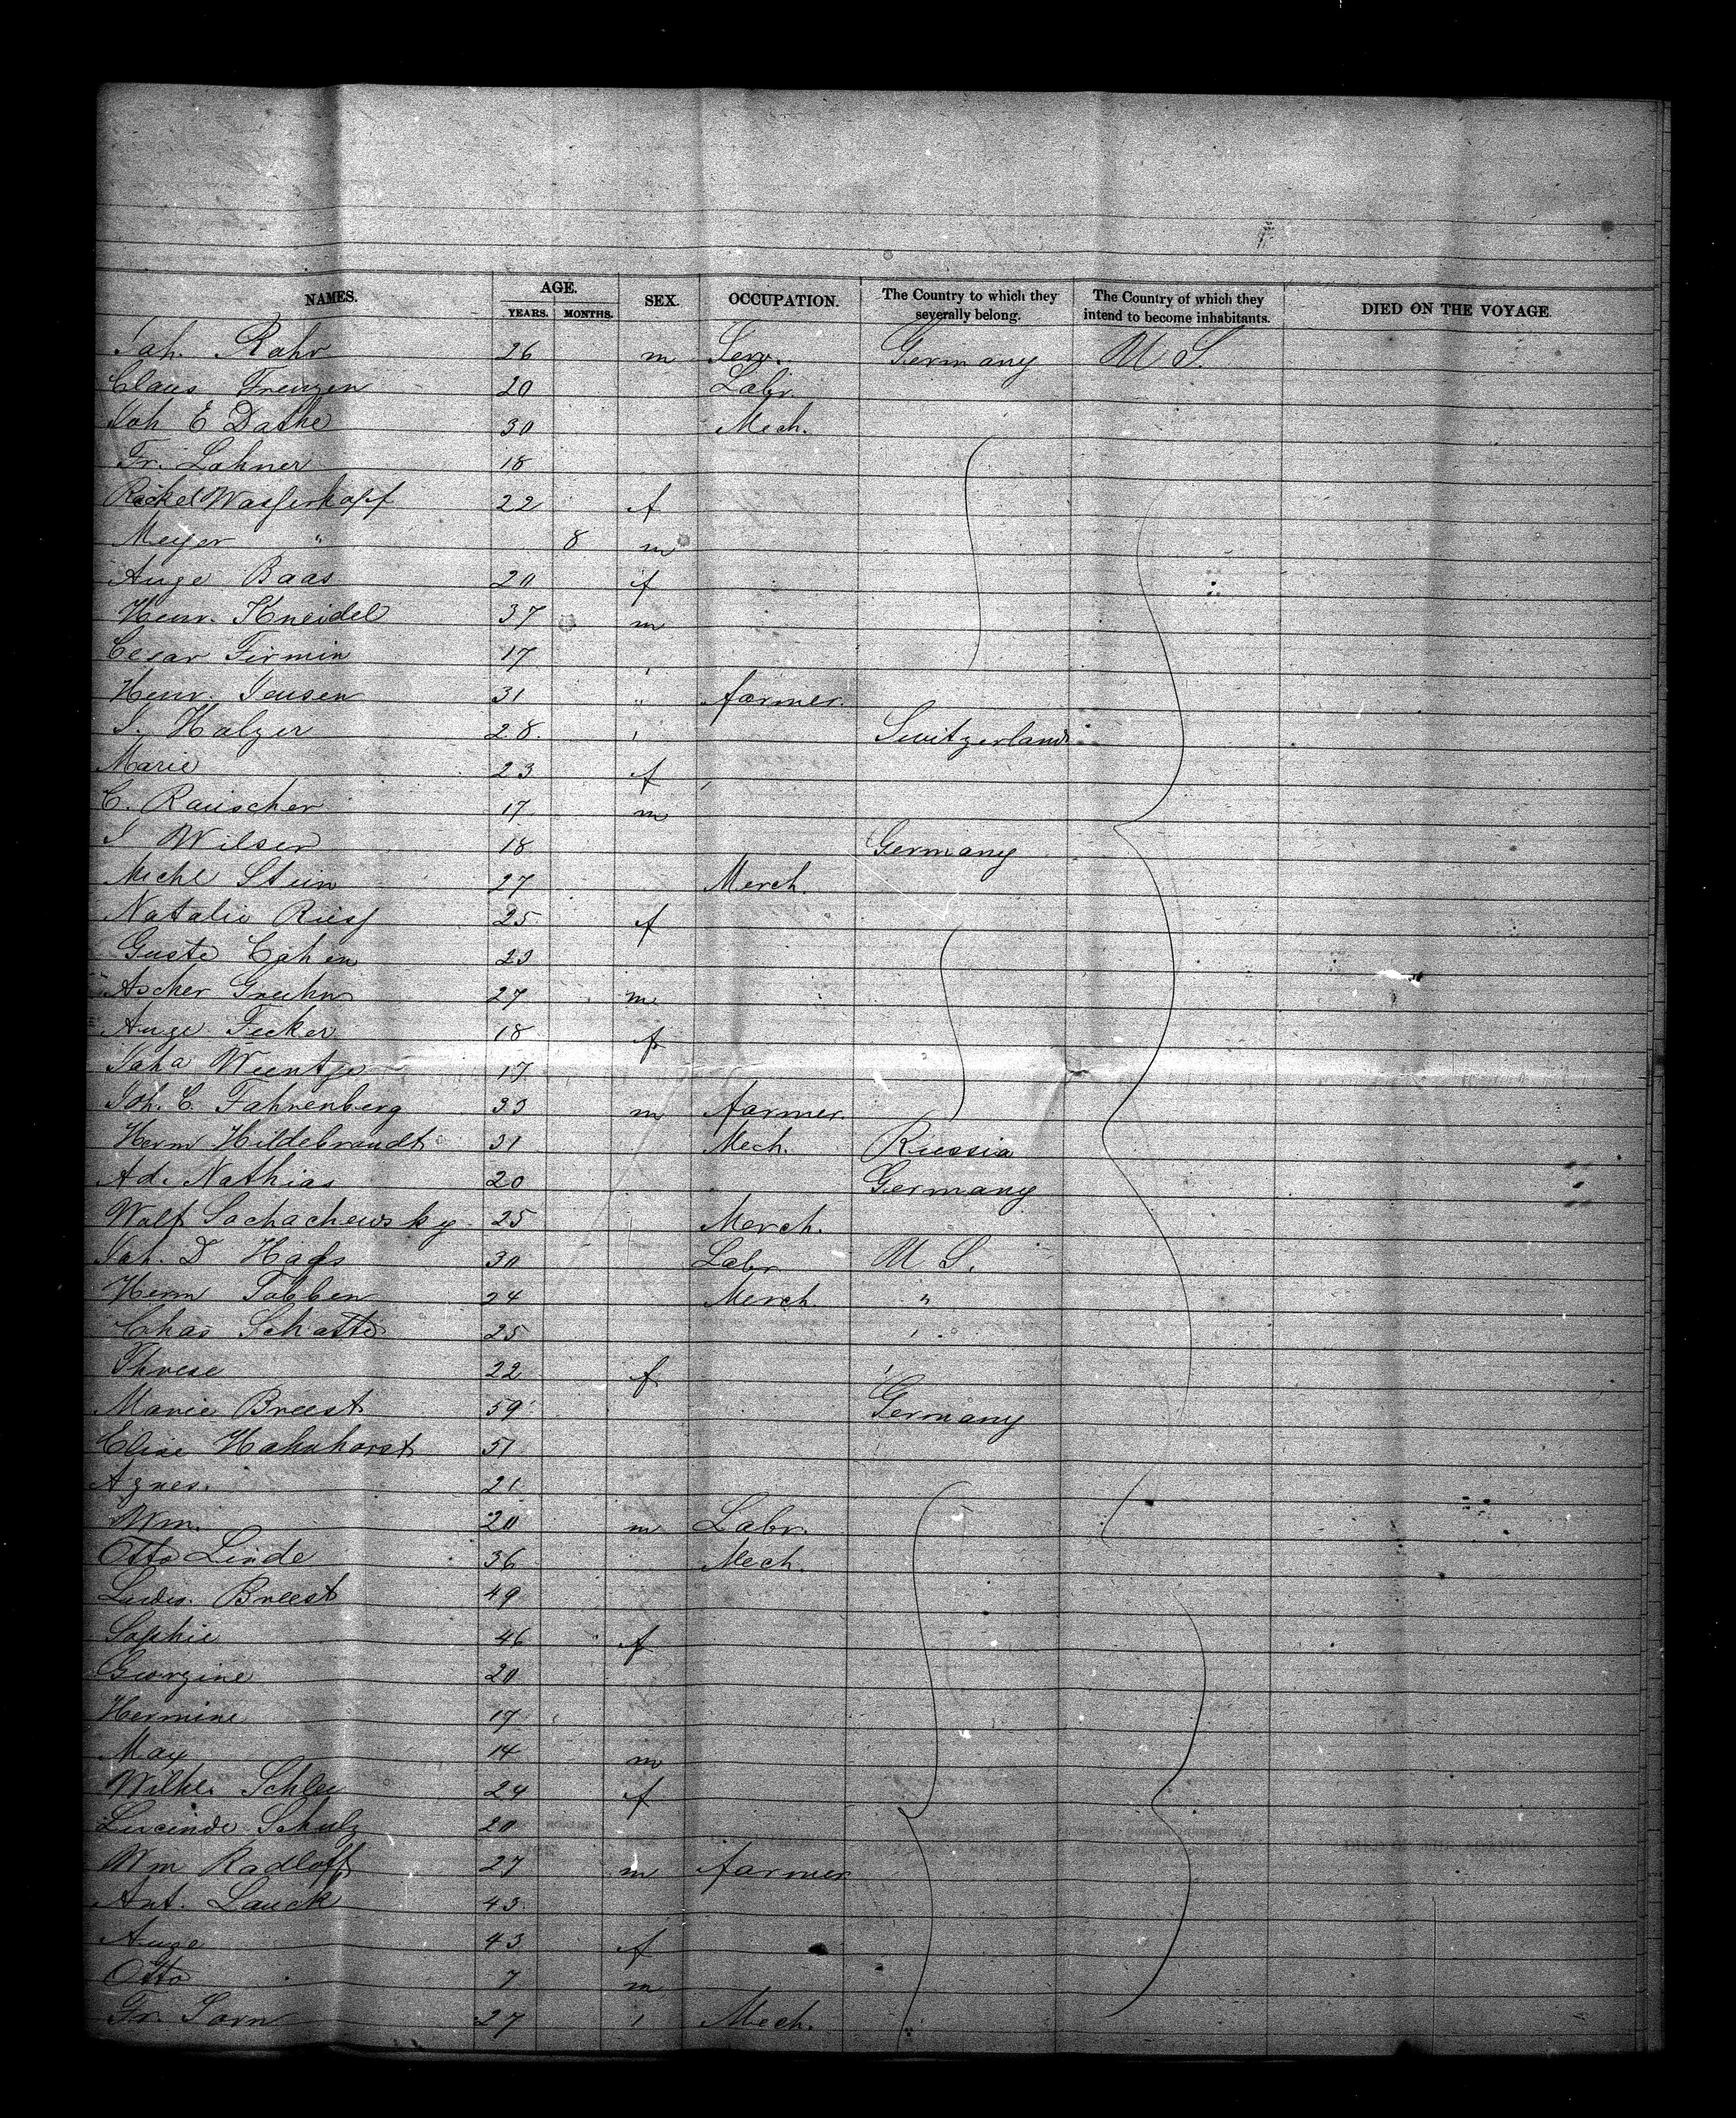 NAMES. AGE. SEX. OCCUPATION. The Country to which they severally belong. The Country of which they intend to become inhabitants. DIED ON THE VOYAGE
YEARS. MONTHS.
Joh. Rohr 26 m Serv. Germany U S.
Claus Frenzen 20 Labr.
Joh E Dathe 30 Mech.
Fr. Lohner 18
Rachel Wasserkopf 22 f
Meyer " 8 m
Auge Baas 20 f
Henr. Kneidel 37 m
Cesar Firmin 17
Henr. Jensen 31 " farmer.
J. Halzer 28 Switzerland
Marie 23 f
C. Rauscher 17 m
J Wilser 18 Germany
Michl Stein 27 Merch.
Natalie Riess 25 f
Guste Cohen 23
Ascher Gruhn 27 m
Auge Fecker 18 f
Joha Wientje 17
Joh. C. Fahrenberg 33 m farmer.
Herm Hildebrandt 31 Mech. Russia
Ad. Nathias 20 Germany
Wolf Sochachewsky 25 Merch.
Joh. D Hass 30 Labr U S.
Herm Tobben 24 Merch. "
Chas Schatte 25
Threse 22 f
Marie Breest 59 Germany
Elise Hahnhorst 51
Agnes. 21
Wm. 20 m Labr.
Otto Linde 36 Mech.
Ludw. Breest 49
Sophie 46 f
Georgine 20
Hermine 17
Max 14 m
Wilhe. Schley 24 f
Lucinde Schulz 20
Wm Radloff 27 m farmer
Ant. Lauck 43
Auge 43 f
Otto 7 m
Fr. Sorn 27 Mech.